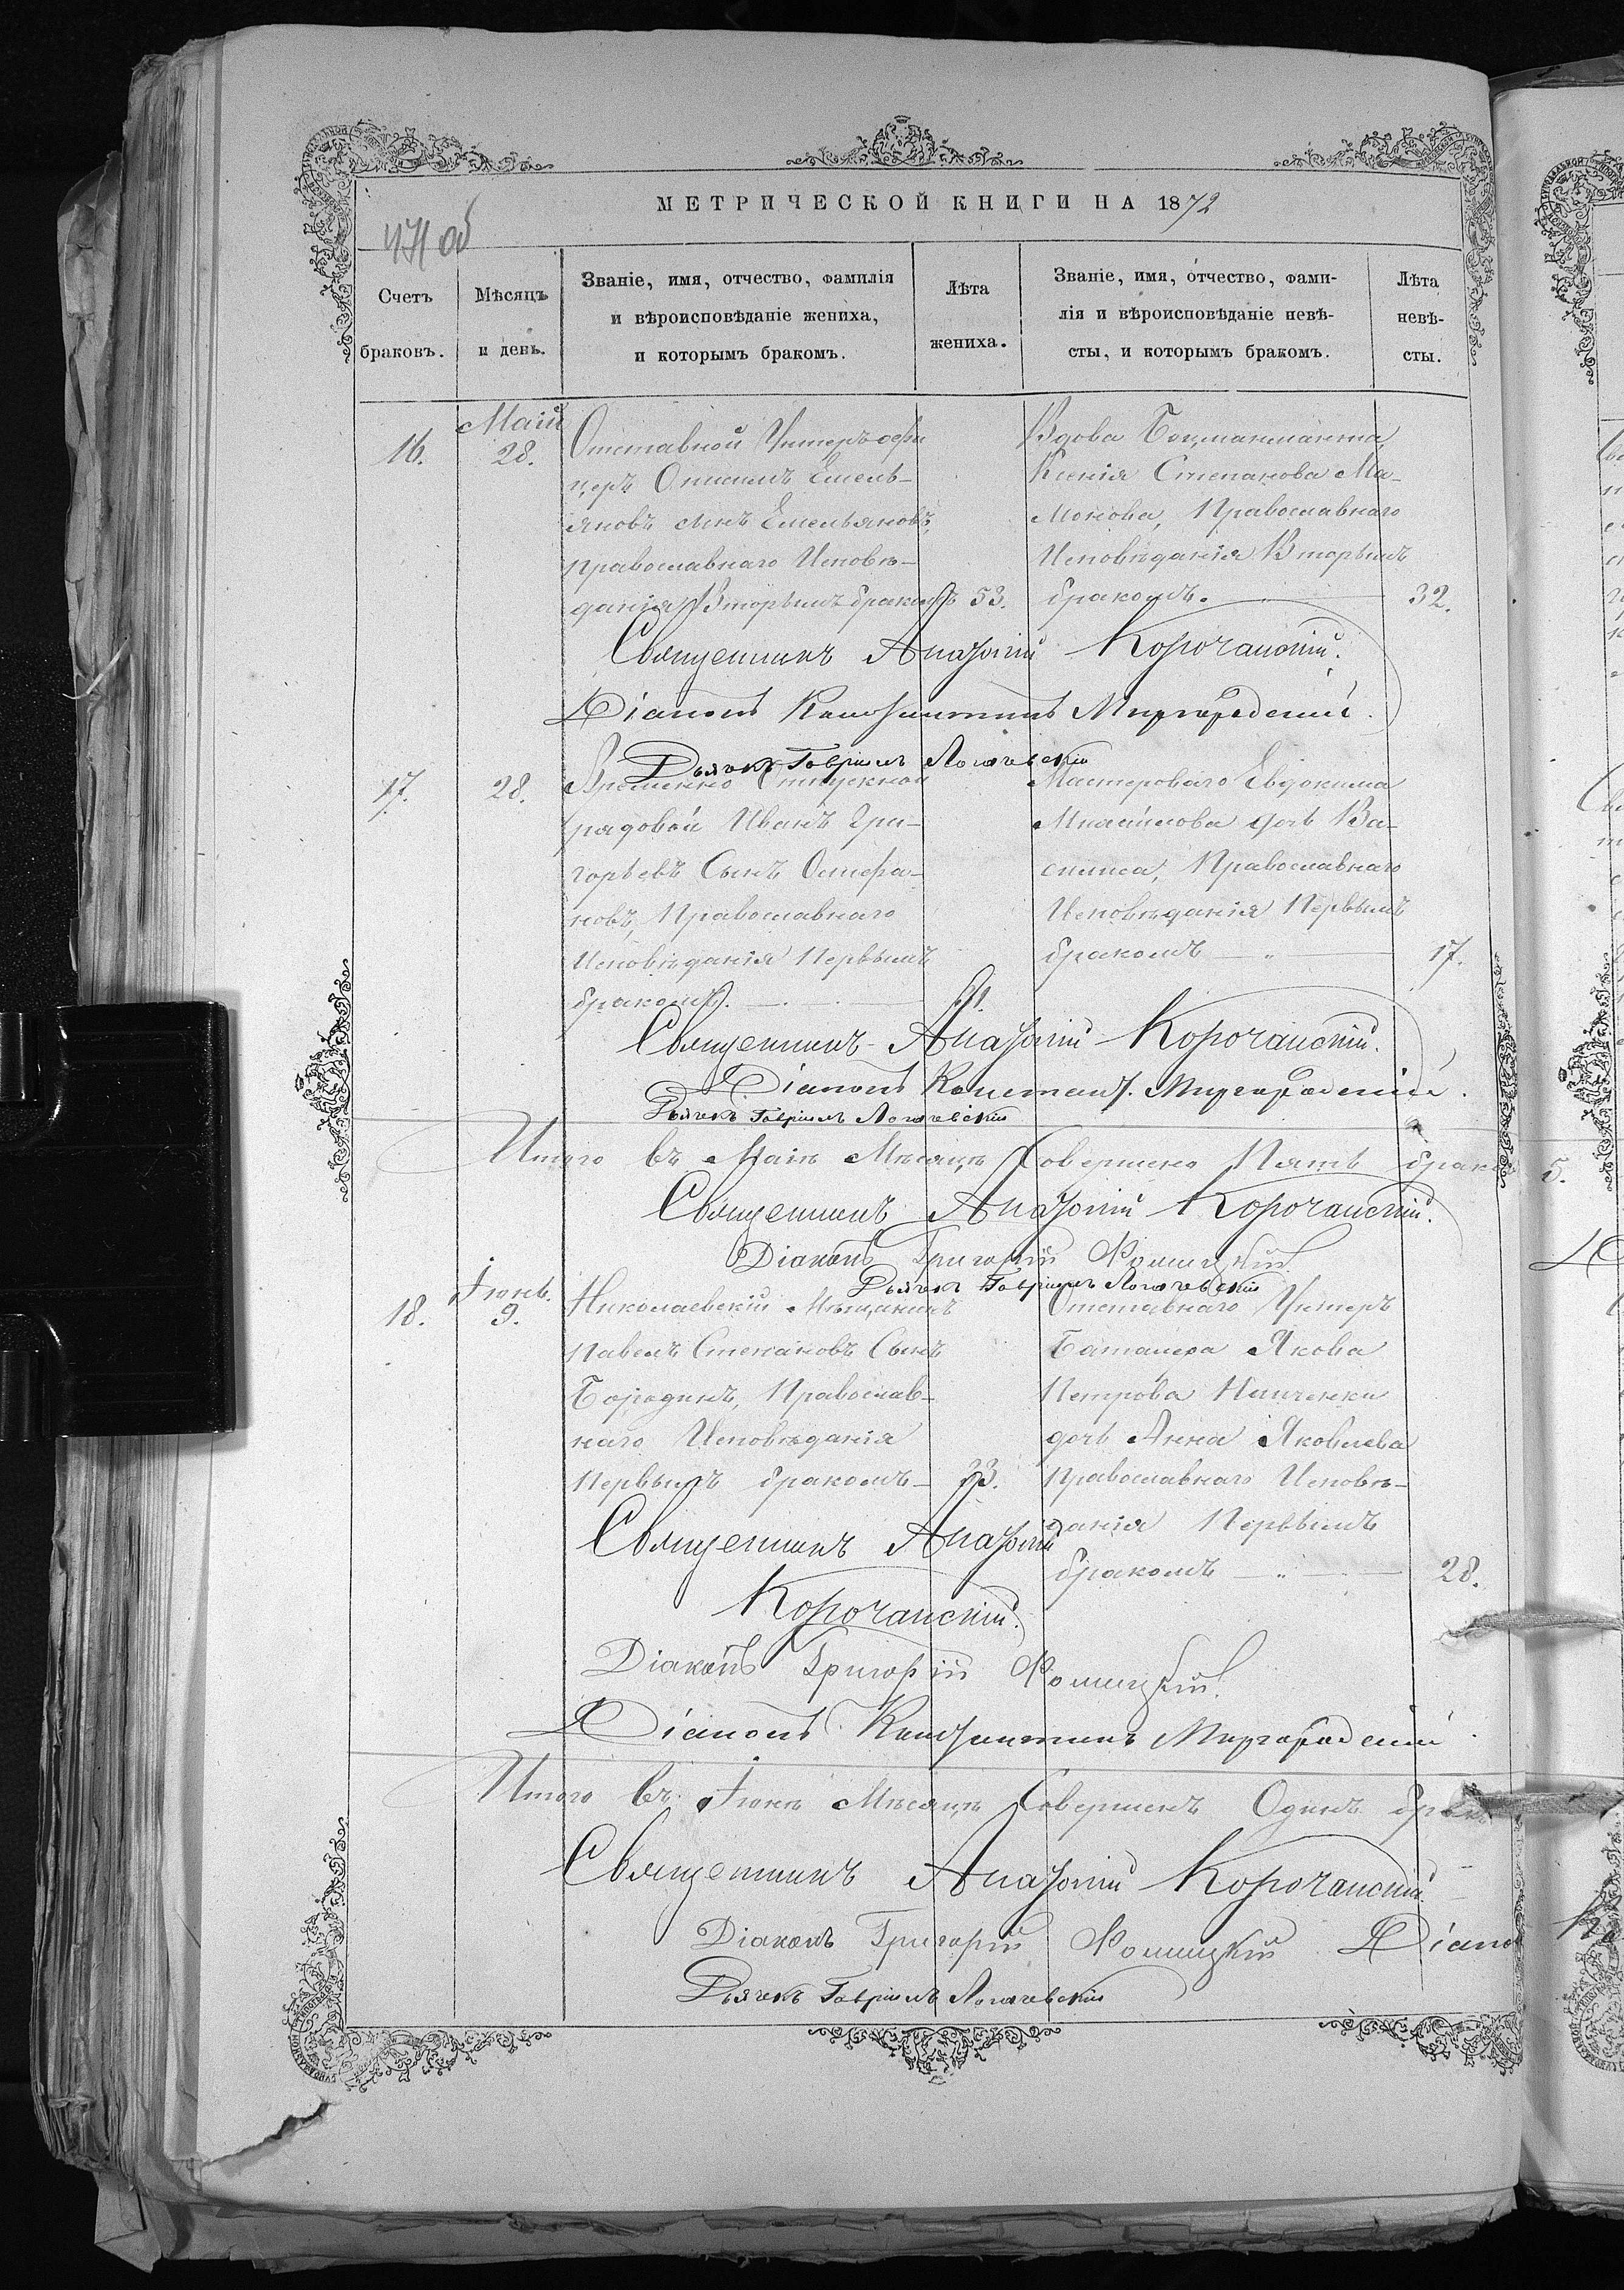 МЕТРИЧЕСКОЙ КНИГИ НА 1872
471 об
Счетъ браковъ.
Мѣсяцъ и день.
Званіе, имя, отчество, фамилія
и вѣроисповѣданіе жениха,
и которымъ бракомъ.
Лѣта жениха.
Званіе, имя, отчество, фами-
лія и вѣроисповѣданіе невѣ-
сты, и которымъ бракомъ.
Лѣта невѣ-
сты.
Маій
16.
28.
Отставной Унтеръ офи
церъ Онисимъ Емель-
яновъ сынъ Емельяновъ,
Православнаго Исповѣ-
данія Вторымъ бракомъ 53.
Вдова Боцманманта
Ксенія Степанова Ма-
монова, Православнаго
Исповѣданія Вторымъ
бракомъ. 32.
Священникъ Анатолій Корочанскій.
Діаконъ Константинъ Миргородскій.
Дьячекъ Гавріилъ
17.
28.
Временно Отпускной
рядовой Иванъ Гри-
горьевъ Сынъ
новъ, Православнаго
Исповѣданія Первымъ
бракомъ.
Мастероваго Евдокима
дочь Ва-
силиса, Православнаго
Исповѣданія Первымъ
бракомъ 17.
Священникъ Анатолій Корочанскій.
Діаконъ Констант. Миргородскій.
Дьячекъ Гавріилъ
Итого въ Маѣ Мѣсяцѣ Совершено Пять брако 5.
Священникъ Анатолій Корочанскій.
Діаконъ Григорій
Дьячекъ Гавріилъ
Іюнь.
18.
9.
Николаевскій Мѣщанинъ
Павелъ Степановъ Сынъ
Бородинъ, Православ-
наго Исповѣданія
Первымъ бракомъ 33.
Отставнаго Унтеръ
Баталера Якова
Петрова
дочь Анна Яковлева
Православнаго Исповѣ-
данія Первымъ
бракомъ 28.
Священникъ Анатолій
Корочанскій.
Діаконъ Григорій
Діаконъ Константинъ Миргородскій
Итого въ Іюнѣ Мѣсяцѣ Совершенъ Одинъ бракъ
Священникъ Анатолій Корочанскій.
Діаконъ Григорій Діако
Дьячекъ Гавріилъ